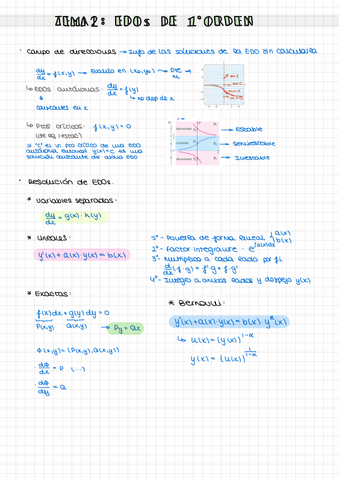 TEMA 2: EDOs DE 1º ORDEN
· Campo de direcciones → Info de las soluciones de la EDO sin calcularla
dy/dx = f(x,y) → Evalúo en (x0,y0) → Pte m
↳ EDOs autónomas: dy/dx = f(y)
↳ no dep de x
↳ Ptos críticos: f(x,y) = 0
Si "c" es un pto crítico de una EDO
autónoma entonces y(x)=c es una
solución constante de dicha EDO
→ Estable
→ Semiestable
→ Inestable
· Resolución de EDOs:
* Variables separadas:
dy/dx = g(x)·h(y)
* Lineales:
y'(x) + a(x)·y(x) = b(x)
1º- Ponerla de forma lineal { a(x) b(x)
2º- Factor integrante · e^∫a(x)dx
3º- Multiplico a cada lado por f.i
d/dx (f·g) = f'·g + f·g'
4º- Integro a ambos lados y despejo y(x)
* Exactas:
f(x)dx + g(y)dy = 0
P(x,y) Q(x,y) → Py = Qx
Φ(x,y) = (P(x,y), Q(x,y))
· dΦ/dx = P (...)
· dΦ/dy = Q
* Bernoulli:
y'(x) + a(x)·y(x) = b(x)·y^α(x)
↳ u(x) = (y(x))^1-α
y(x) = (u(x))^1/1-α